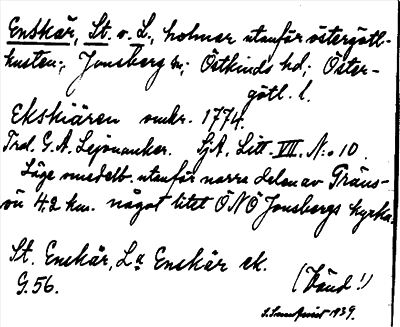 Enskär, St. o. L., holmar utanför östergötl-
kusten; Jonsberg sn; Östkinds hd; Öster-
götl. l.
Ekskiären omkr. 1774.
Trol. G. A. Lejonanker. SjA. Litt. VII. N:o 10.
Läge meddelt. utanför norra delen av Gräns-
ön 4.2 km. något litet ÖNÖ Jonsbergs kyrka.
St. Enskär, La Enskär ek.
G. 56.
(Vänd!)
1939.